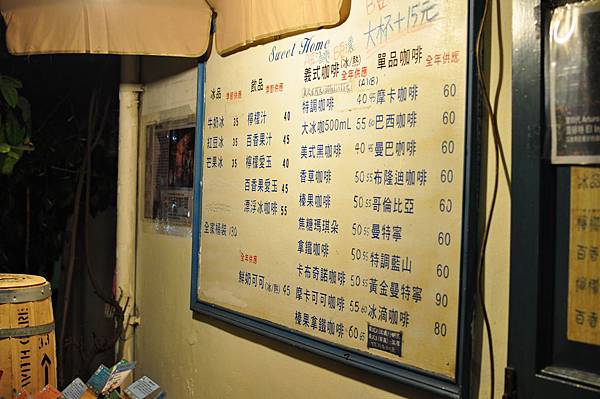 大杯+15元
Sweet Home
冰品 季節供應
牛奶冰 35
紅豆冰 35
芒果冰 35
全家桶裝 130
飲品 季節供應
檸檬汁 40
百香果汁 45
檸檬愛玉 40
百香果愛玉 45
漂浮冰咖啡 55
全年供應
鮮奶可可(冰/熱) 45
義式咖啡(冰/熱) 全年供應
特調咖啡 40 45
大冰咖500mL 55 60
美式黑咖啡 40 45
香草咖啡 50 55
榛果咖啡 50 55
焦糖瑪琪朵 50 55
拿鐵咖啡 50 55
卡布奇諾咖啡 50 55
摩卡可可咖啡 55 60
榛果拿鐵咖啡 60 65
單品咖啡 全年供應
摩卡咖啡 60
巴西咖啡 60
曼巴咖啡 60
布隆迪咖啡 60
哥倫比亞 60
曼特寧 60
特調藍山 60
黃金曼特寧 90
冰滴咖啡 80